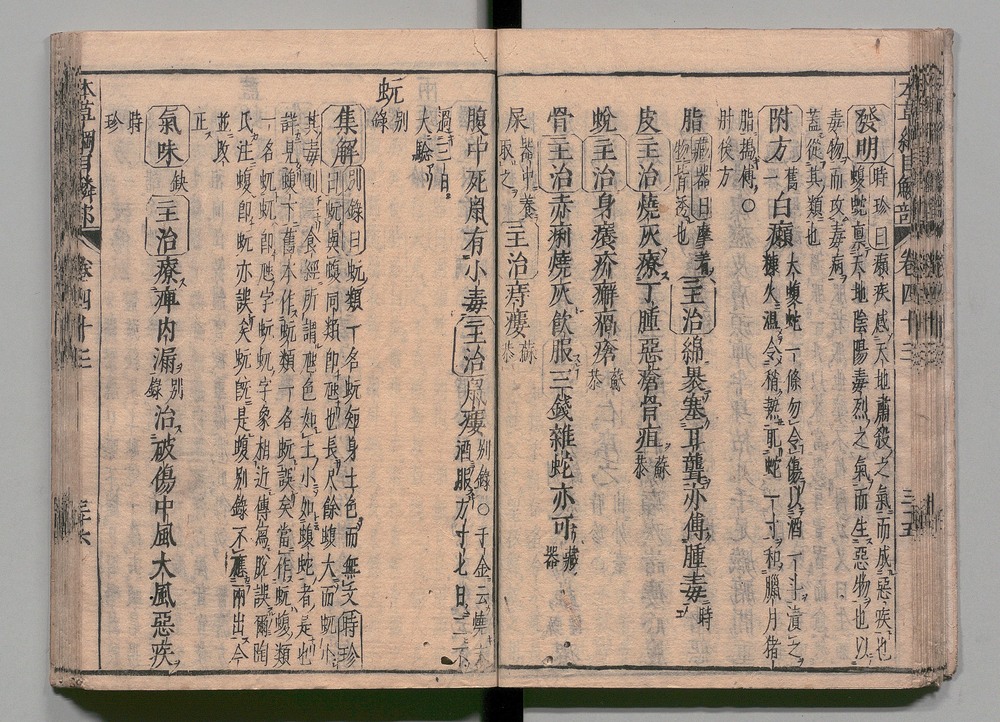 發明 時珍曰癩疾感天地肅殺之氣而成惡疾也
蝮蛇稟天地陰陽毒烈之氣而生惡物也以
毒物而攻毒病
蓋從其類也
附方 舊一 白癩 大蝮蛇一條勿令傷以酒一斗漬之
糠火溫令稍熱取蛇一寸和臘月猪
脂搗傅○
肘後方
脂 藏器曰摩着
物皆透也 主治 綿裹塞耳聾亦傅腫毒 時
皮 主治 燒灰療丁腫惡瘡骨疽 蘇恭
蛻 主治 身癢疥癬瘑瘡 蘇恭
骨 主治 赤痢燒灰飲服三錢雜蛇亦可 藏器
屎 器中養
取之 主治 痔瘻 蘇恭
腹中死鼠有小毒 主治 鼠瘻 別錄○千金云燒末
酒服方寸匕日二不
過三日
大驗
蚖 別錄
集解 別錄曰蚖類一名蚖短身土色而無文時珍
曰蚖與蝮同類即虺也長尺餘蝮大而蚖小
其毒則一食經所謂虺色如土小如蝮蛇者是也
詳見蝮下舊本作蚖類一名蚖誤矣當作蚖蝮類
一名蚖蚖即虺字蚖蚖字象相近傳寫脫誤爾陶
氏注蝮即蚖亦誤矣蚖既是蝮別錄不應兩出今
並改
正
氣味 缺 主治 療痺內漏 別錄 治破傷中風大風惡疾
時
珍
本草綱目鱗部 卷四十三 三十五
本草綱目鱗部 卷四十三 三十六